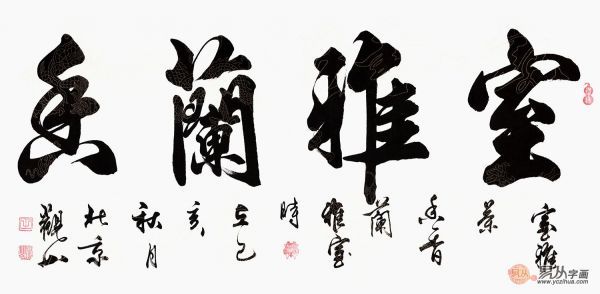 室雅蘭香
室雅
茶
香
蘭
雅室
時
在己
亥
秋月
北京
觀山
易从字画
www.yczihua.com